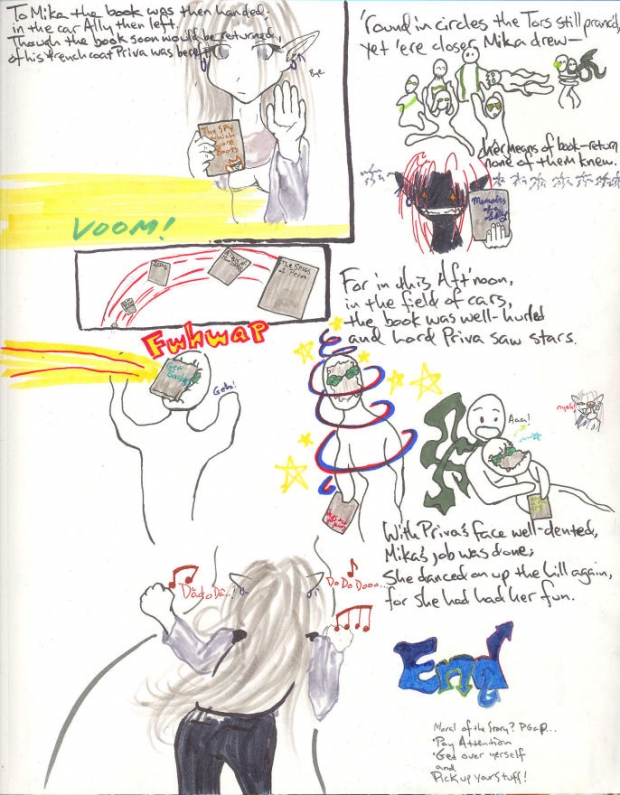 To Mika the book was then handed;
in the car Ally then left.
Though the book soon would be returned,
of his trenchcoat Priva was bereft
Bye
The Spy
which
wore
Boots
VOOM!
'round in circles the Tors still pranced,
yet 'ere closer Mika drew—
Other means of book-return
none of them knew.
Memoirs
of a
For in this Aft'noon,
in the field of cars,
the book was well-hurled
and Lord Priva saw stars.
Fwhwap
Geh!
Aaa!
nyeh!
With Priva's face well-dented,
Mika's job was done;
She danced on up the hill again,
for she had had her fun.
Da do Da..!
Do Do Dooo...
End
Moral of the Story? PG&P...
'Pay Attention
'Get over yerself
and
Pick up your stuff!